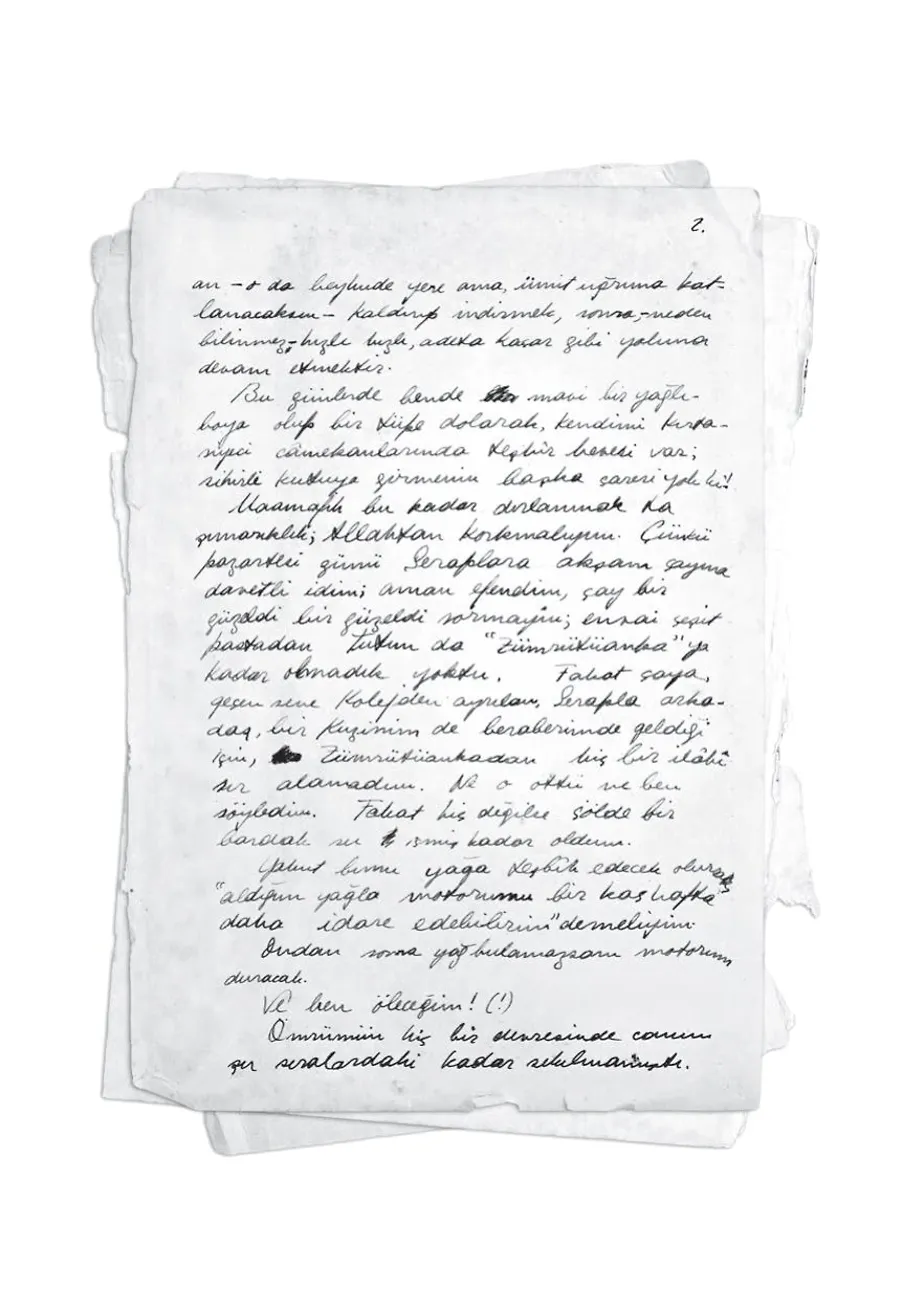 2.
an – o da beyhude yere ama, ümit uğruna kat-
lanacaksın – kaldırıp indirmek, sonra, – neden
bilinmez, – hızlı hızlı, adeta kaçar gibi yoluna
devam etmektir.
Bu günlerde bende mavi bir yağlı-
boya olup bir tüpe dolarak, kendimi kırta-
siyeci câmekanlarında teşhir hevesi var;
sihirli kutuya girmenin başka çaresi yok ki!
Maamafih bu kadar dırlanmak ta
şımarıklık; Allahtan korkmalıyım. Çünkü
pazartesi günü Seraplara akşam çayına
davetli idim; aman efendim, çay bir
güzeldi bir güzeldi sormayın; envai çeşit
pastadan tutun da "Zümrütüanka" ya
kadar olmadık yoktu. Fakat çaya,
geçen sene Kolejden ayrılan, Serapla arka-
daş, bir kuzinim de beraberimde geldiği
için, Zümrütüankadan hiç bir ilâhî
sır alamadım. Ne o öttü ne ben
söyledim. Fakat hiç değilse çölde bir
bardak su içmiş kadar oldum.
Yahut bunu yağa teşbih edecek olursak
"aldığım yağla motorumu bir kaç hafta
daha idare edebilirim" demeliyim.
Ondan sonra yağ bulamazsam motorum
duracak.
Ve ben öleceğim! (!)
Ömrümün hiç bir devresinde canım
şu sıralardaki kadar sıkılmamıştı.